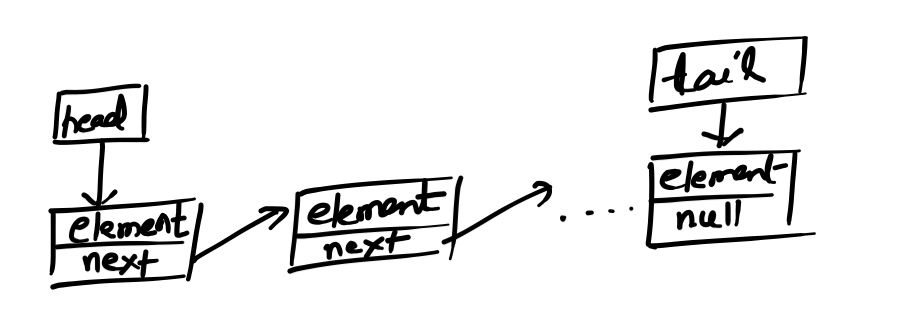 head
element
next
element
next
. . . . .
tail
element
null